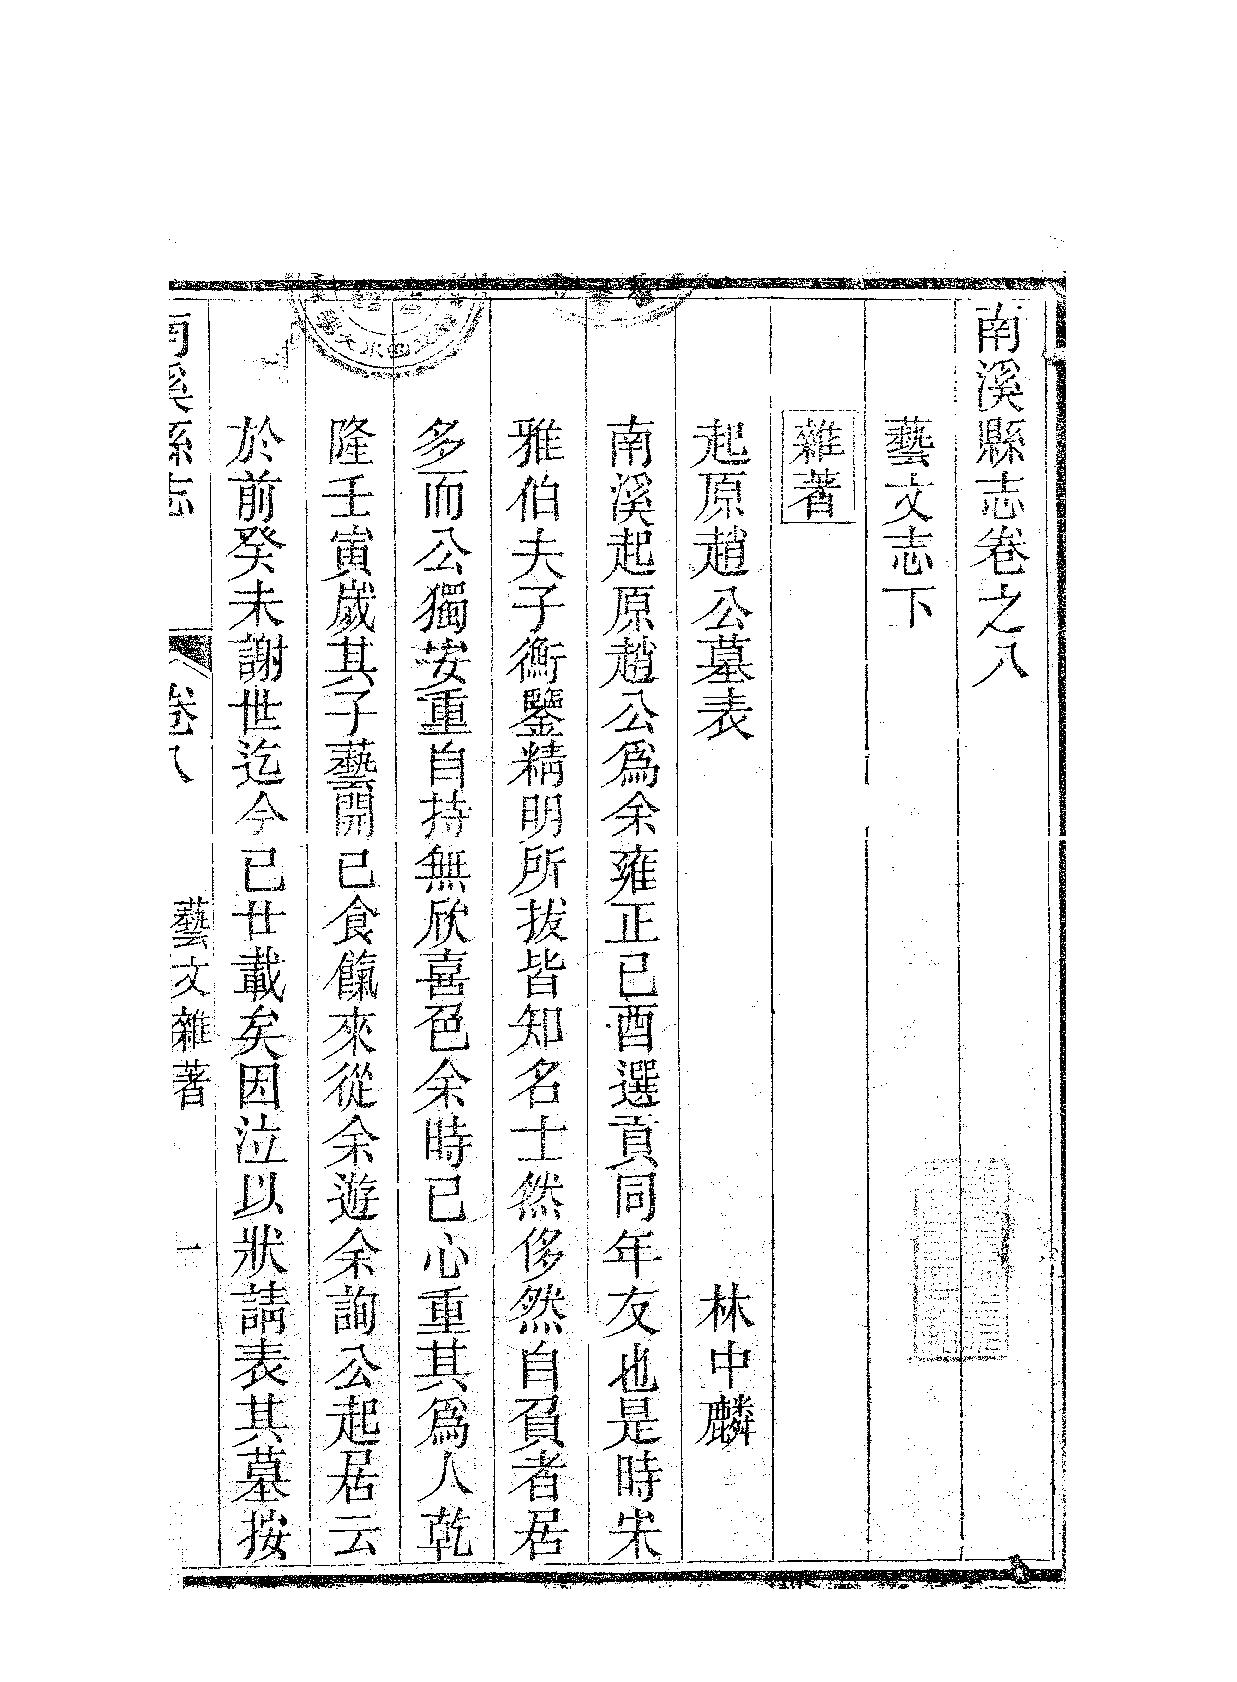 南溪縣志卷之八
藝文志下
雜著
起原趙公墓表 林中麟
南溪起原趙公爲余雍正己酉選貢同年友也是時宋
雅伯夫子衡鑒精明所拔皆知名士然侈然自負者居
多而公獨安重自持無欣喜色余時已心重其爲人乾
隆壬寅歲其子藝開已食餼來從余遊余詢公起居云
於前癸未謝世迄今已廿載矣因泣以狀請表其墓按
南溪縣志 卷八 藝文雜著 一